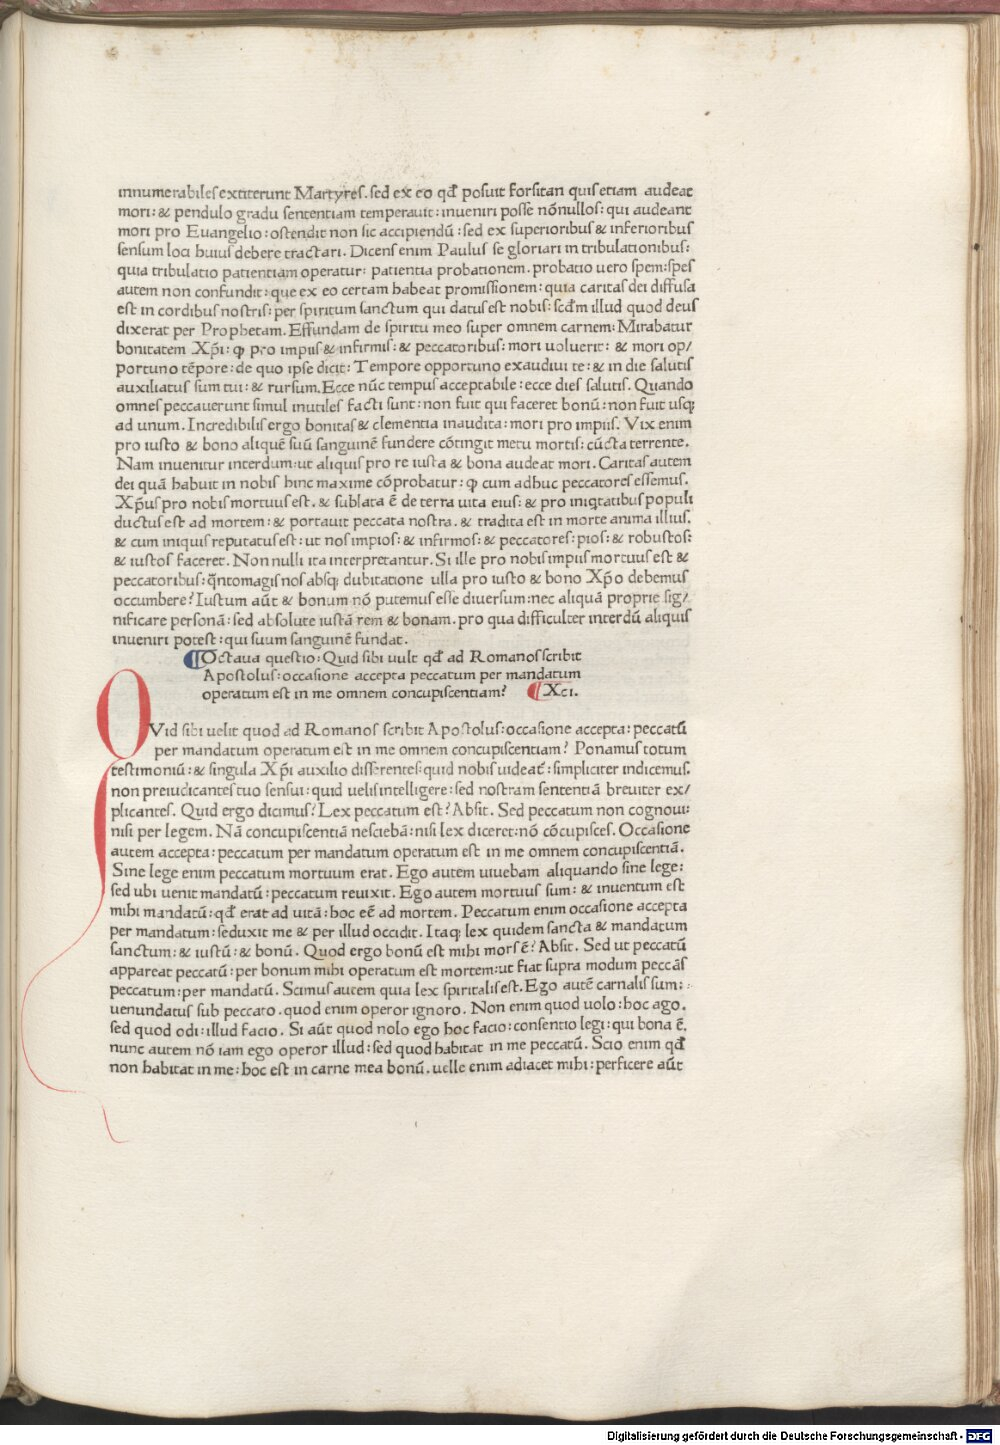 innumerabiles extiterunt Martyres. sed ex eo qđ posuit forsitan quis etiam audeat
mori: & pendulo gradu sententiam temperauit: inueniri posse nōnullos: qui audeant
mori pro Euangelio: ostendit non sic accipiendū: sed ex superioribus & inferioribus
sensum loci huius debere tractari. Dicens enim Paulus se gloriari in tribulationibus:
quia tribulatio patientiam operatur: patientia probationem. probatio uero spem: spes
autem non confundit: que ex eo certam habeat promissionem: quia caritas dei diffusa
est in cordibus nostris: per spiritum sanctum qui datus est nobis: scdm illud quod deus
dixerat per Prophetam. Effundam de spiritu meo super omnem carnem: Mirabatur
bonitatem Xp̄i: ꝙ pro impiis & infirmis: & peccatoribus: mori uoluerit: & mori op/
portuno tēpore: de quo ipse dicit: Tempore opportuno exaudiui te: & in die salutis
auxiliatus sum tui: & rursum. Ecce nūc tempus acceptabile: ecce dies salutis. Quando
omnes peccauerunt simul inutiles facti sunt: non fuit qui faceret bonū: non fuit usq;
ad unum. Incredibilis ergo bonitas & clementia inaudita: mori pro impiis. Vix enim
pro iusto & bono aliquē suū sanguinē fundere cōtingit metu mortis: cūcta terrente.
Nam inuenitur interdum: ut aliquis pro re iusta & bona audeat mori. Caritas autem
dei quā habuit in nobis hinc maxime cōprobatur: ꝙ cum adhuc peccatores essemus.
Xp̄us pro nobis mortuus est. & sublata ē de terra uita eius: & pro iniqtatibus populi
ductus est ad mortem: & portauit peccata nostra. & tradita est in morte anima illius.
& cum iniquis reputatus est: ut nos impios: & infirmos: & peccatores: pios: & robustos:
& iustos faceret. Non nulli ita interpretantur. Si ille pro nobis impiis mortuus est &
peccatoribus: q̄ntomagis nos absq; dubitatione ulla pro iusto & bono Xp̄o debemus
occumbere? Iustum aūt & bonum nō putemus esse diuersum: nec aliquā proprie sig/
nificare personā: sed absolute iustā rem & bonam. pro qua difficulter interdū aliquis
inueniri potest: qui suum sanguinē fundat.
¶Octaua questio: Quid sibi uult qđ ad Romanos scribit
Apostolus: occasione accepta peccatum per mandatum
operatum est in me omnem concupiscentiam? ¶Xci.
QVid sibi uelit quod ad Romanos scribit Apostolus: occasione accepta: peccatū
per mandatum operatum est in me omnem concupiscentiam? Ponamus totum
testimoniū: & singula Xp̄i auxilio disserentes: quid nobis uideat̄: simpliciter indicemus.
non preiudicantes tuo sensui: quid uelis intelligere: sed nostram sententiā breuiter ex/
plicantes. Quid ergo dicimus? Lex peccatum est? Absit. Sed peccatum non cognoui:
nisi per legem. Nā concupiscentiā nesciebā: nisi lex diceret: nō cōcupisces. Occasione
autem accepta: peccatum per mandatum operatum est in me omnem concupiscentiā.
Sine lege enim peccatum mortuum erat. Ego autem uiuebam aliquando sine lege:
sed ubi uenit mandatū: peccatum reuixit. Ego autem mortuus sum: & inuentum est
mihi mandatū: qđ erat ad uitā: hoc eē ad mortem. Peccatum enim occasione accepta
per mandatum: seduxit me & per illud occidit. Itaq; lex quidem sancta & mandatum
sanctum: & iustū: & bonū. Quod ergo bonū est mihi mors ē? Absit. Sed ut peccatū
appareat peccatū: per bonum mihi operatum est mortem: ut fiat supra modum peccās
peccatum: per mandatū. Scimus autem quia lex spiritalis est. Ego autē carnalis sum:
uenundatus sub peccato. quod enim operor ignoro. Non enim quod uolo: hoc ago.
sed quod odi: illud facio. Si aūt quod nolo ego hoc facio: consentio legi: qui bona ē.
nunc autem nō iam ego operor illud: sed quod habitat in me peccatū. Scio enim qđ
non habitat in me: hoc est in carne mea bonū. uelle enim adiacet mihi: perficere aūt
Digitalisierung gefördert durch die Deutsche Forschungsgemeinschaft - DFG